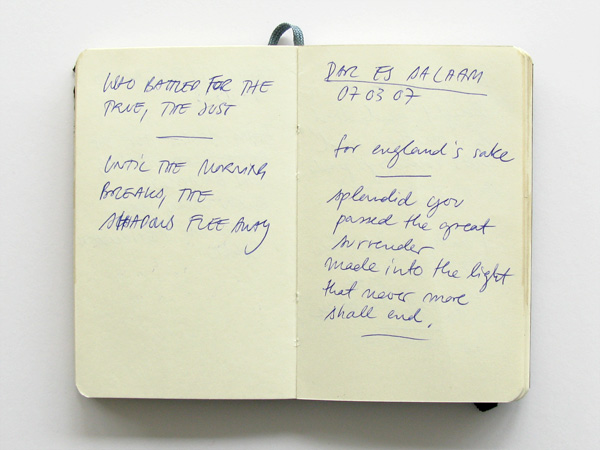 WHO BATTLED FOR THE
TRUE, THE JUST
UNTIL THE MORNING
BREAKS, THE
SHADOWS FLEE AWAY
DAR ES SALAAM
07 03 07
for england's sake
splendid you
passed the great
surrender
made into the light
that never more
shall end.